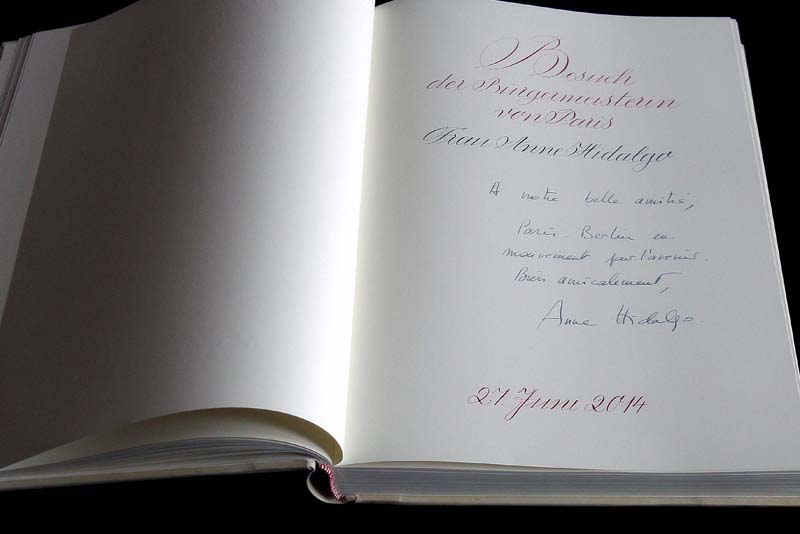 Besuch
der Bürgermeisterin
von Paris
Frau Anne Hidalgo
A notre belle amitié,
Paris-Berlin en
mouvement pour l'avenir.
Bien amicalement,
Anne Hidalgo
27. Juni 2014